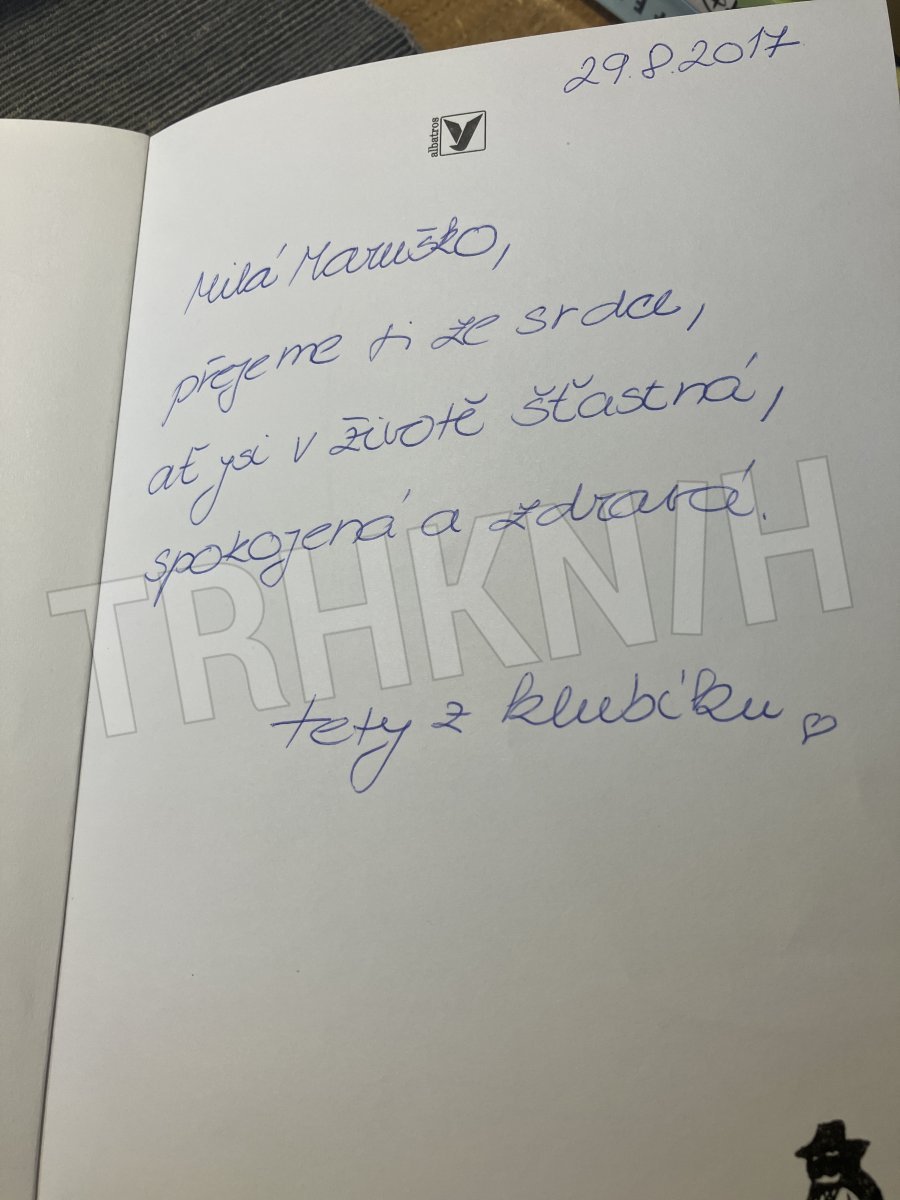 29.8.2017
albatros
Milá Maruško,
přejeme ti ze srdce,
ať jsi v životě šťastná,
spokojená a zdravá.
TRHKNIH
tety z klubíku ♡